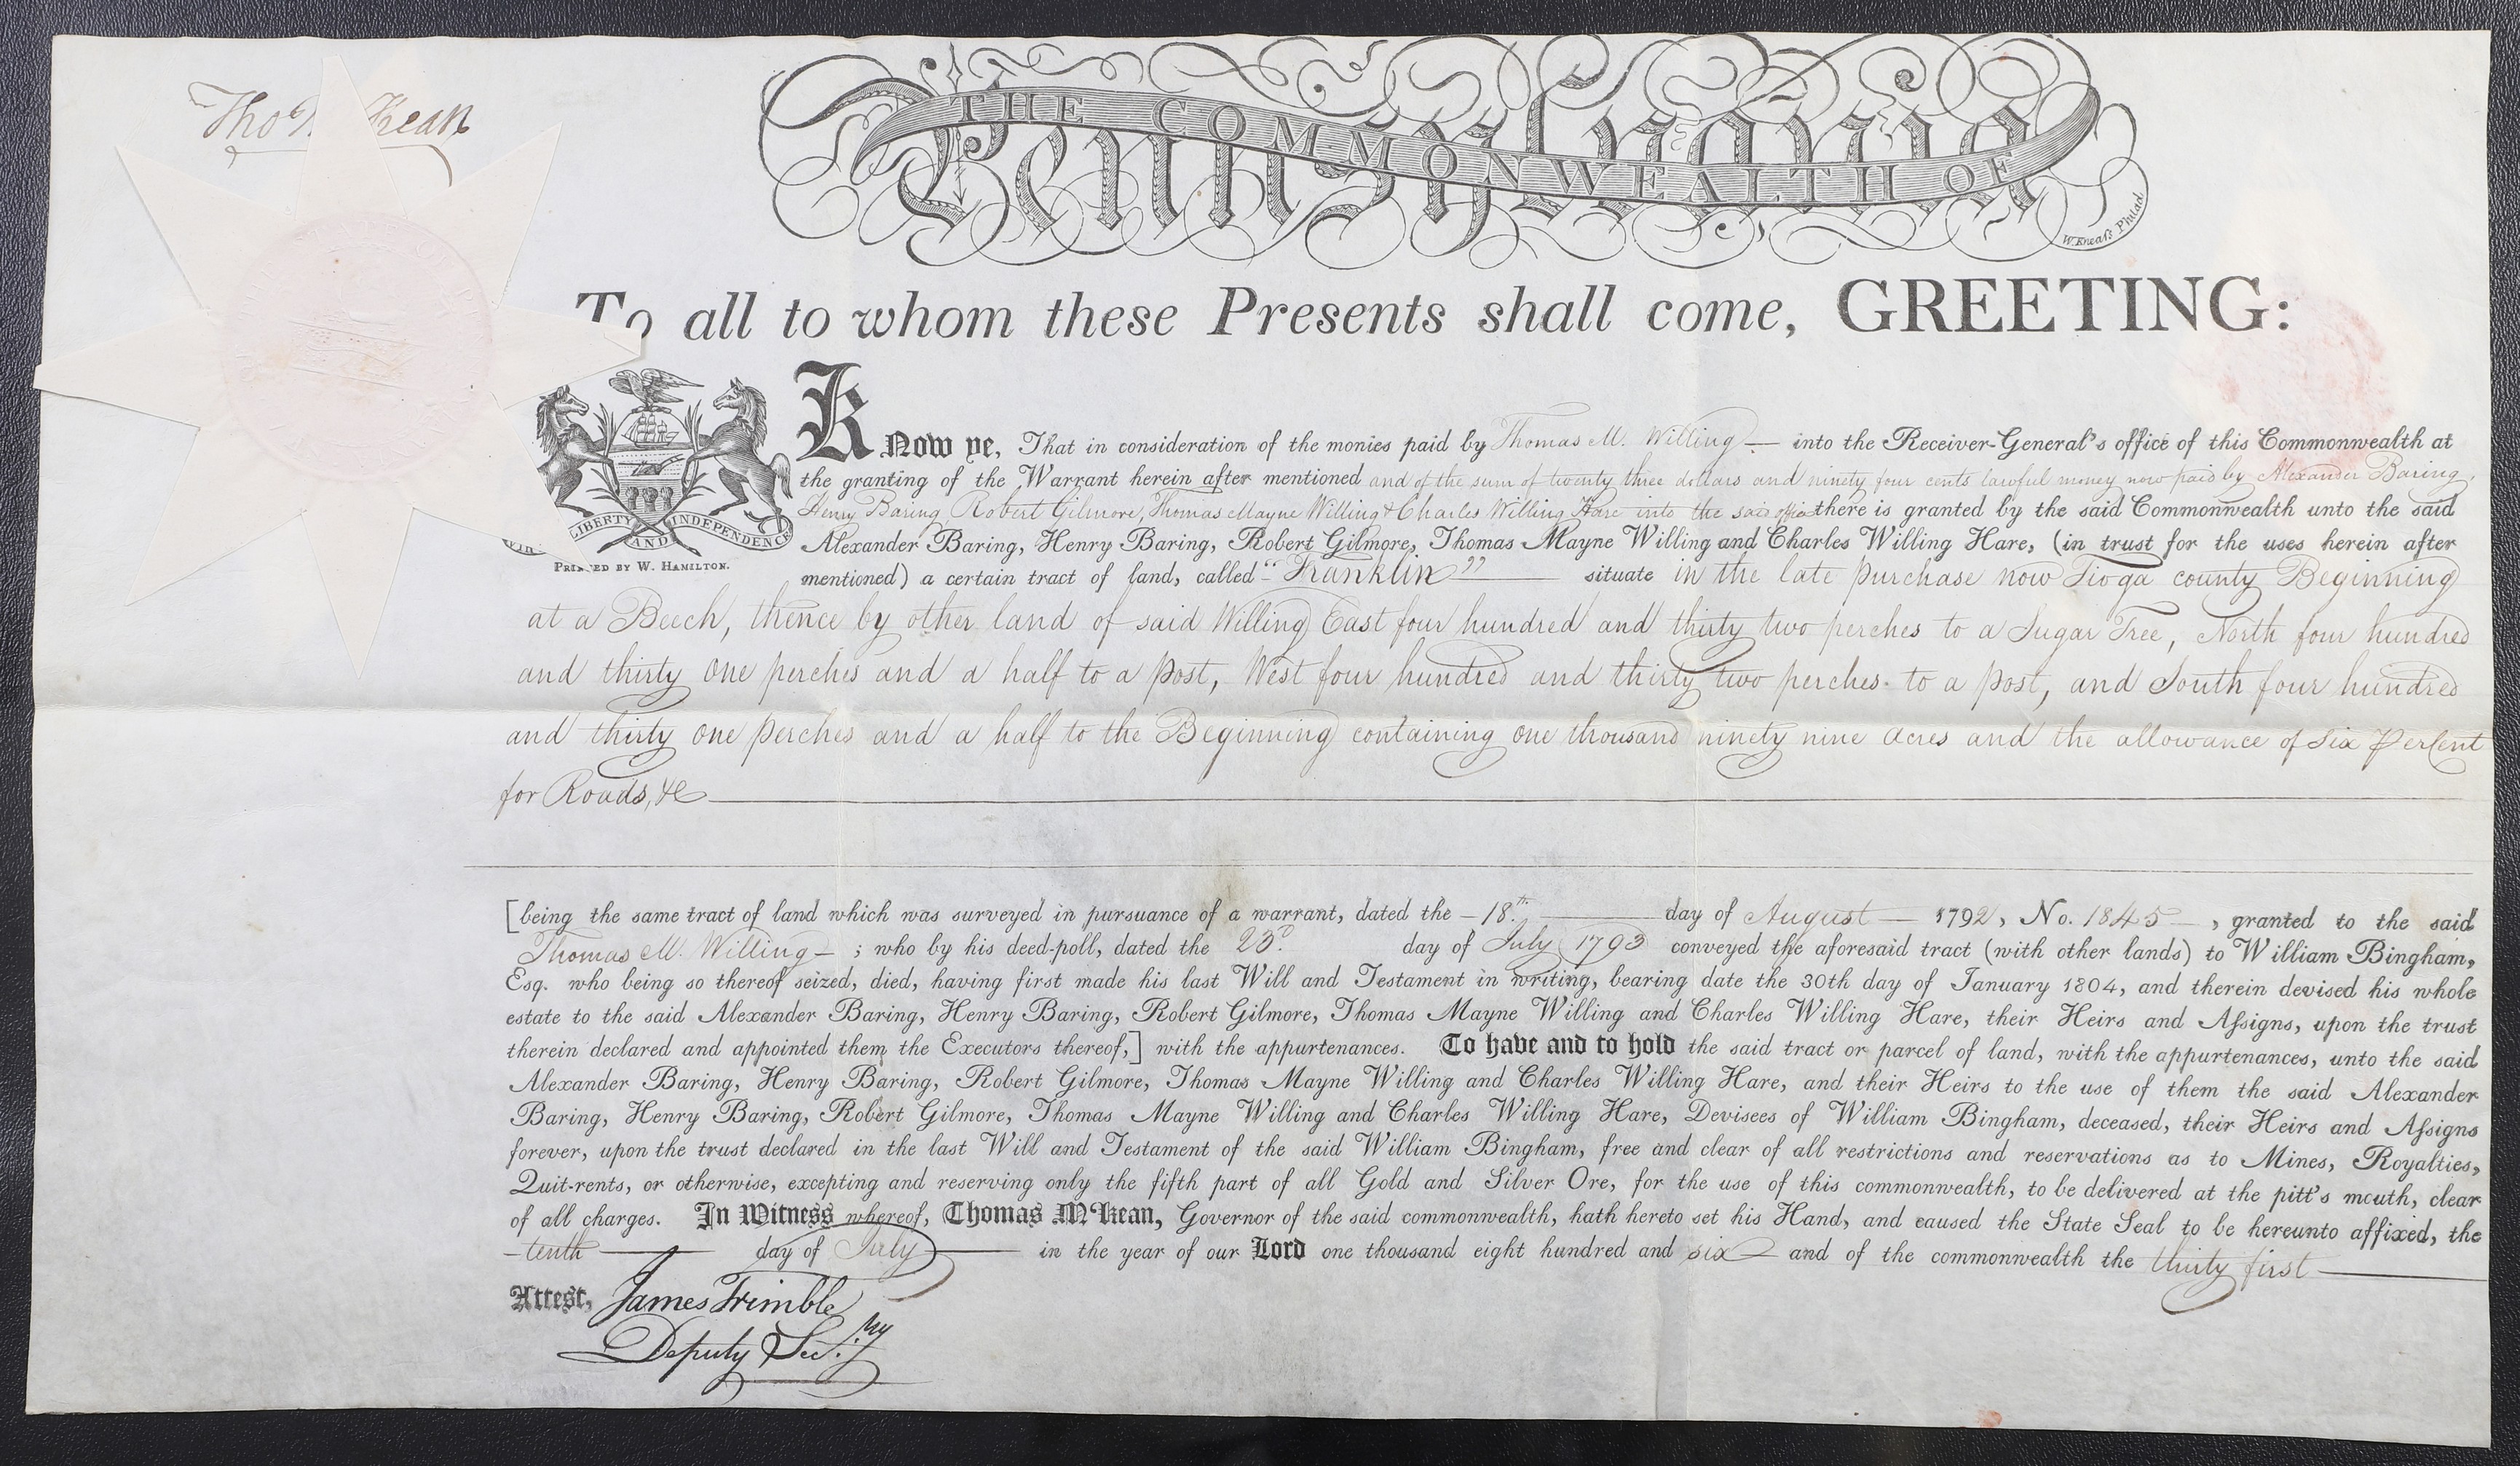 Tho M Kean
THE COMMONWEALTH OF
Pennsylvania
W. Kneass Philad
To all to whom these Presents shall come, GREETING:
Know ye, That in consideration of the monies paid by Thomas M. Willing — into the Receiver-General's office of this Commonwealth at
the granting of the Warrant herein after mentioned and of the sum of twenty three dollars and ninety four cents lawful money now paid by Alexander Baring,
Henry Baring, Robert Gilmore, Thomas Mayne Willing & Charles Willing Hare into the said office there is granted by the said Commonwealth unto the said
Alexander Baring, Henry Baring, Robert Gilmore, Thomas Mayne Willing and Charles Willing Hare, (in trust for the uses herein after
mentioned) a certain tract of land, called "Franklin" situate in the late purchase now Tioga county Beginning
LIBERTY AND INDEPENDENCE
PRINTED BY W. HAMILTON.
at a Beech, thence by other land of said Willing East four hundred and thirty two perches to a Sugar Tree, North four hundred
and thirty one perches and a half to a post, West four hundred and thirty two perches to a post, and South four hundred
and thirty one perches and a half to the Beginning containing one thousand ninety nine acres and the allowance of six per Cent
for Roads, &c
[being the same tract of land which was surveyed in pursuance of a warrant, dated the 18th day of August 1792, No. 1845, granted to the said
Thomas M. Willing ; who by his deed-poll, dated the 23d day of July 1793 conveyed the aforesaid tract (with other lands) to William Bingham,
Esq. who being so thereof seized, died, having first made his last Will and Testament in writing, bearing date the 30th day of January 1804, and therein devised his whole
estate to the said Alexander Baring, Henry Baring, Robert Gilmore, Thomas Mayne Willing and Charles Willing Hare, their Heirs and Assigns, upon the trust
therein declared and appointed them the Executors thereof,] with the appurtenances. To have and to hold the said tract or parcel of land, with the appurtenances, unto the said
Alexander Baring, Henry Baring, Robert Gilmore, Thomas Mayne Willing and Charles Willing Hare, and their Heirs to the use of them the said Alexander
Baring, Henry Baring, Robert Gilmore, Thomas Mayne Willing and Charles Willing Hare, Devisees of William Bingham, deceased, their Heirs and Assigns
forever, upon the trust declared in the last Will and Testament of the said William Bingham, free and clear of all restrictions and reservations as to Mines, Royalties,
Quit-rents, or otherwise, excepting and reserving only the fifth part of all Gold and Silver Ore, for the use of this commonwealth, to be delivered at the pitt's mouth, clear
of all charges. In Witness whereof, Thomas M'Kean, Governor of the said commonwealth, hath hereto set his Hand, and caused the State Seal to be hereunto affixed, the
tenth day of July in the year of our Lord one thousand eight hundred and six and of the commonwealth the thirty first
Attest, James Trimble
Deputy Sec.ry